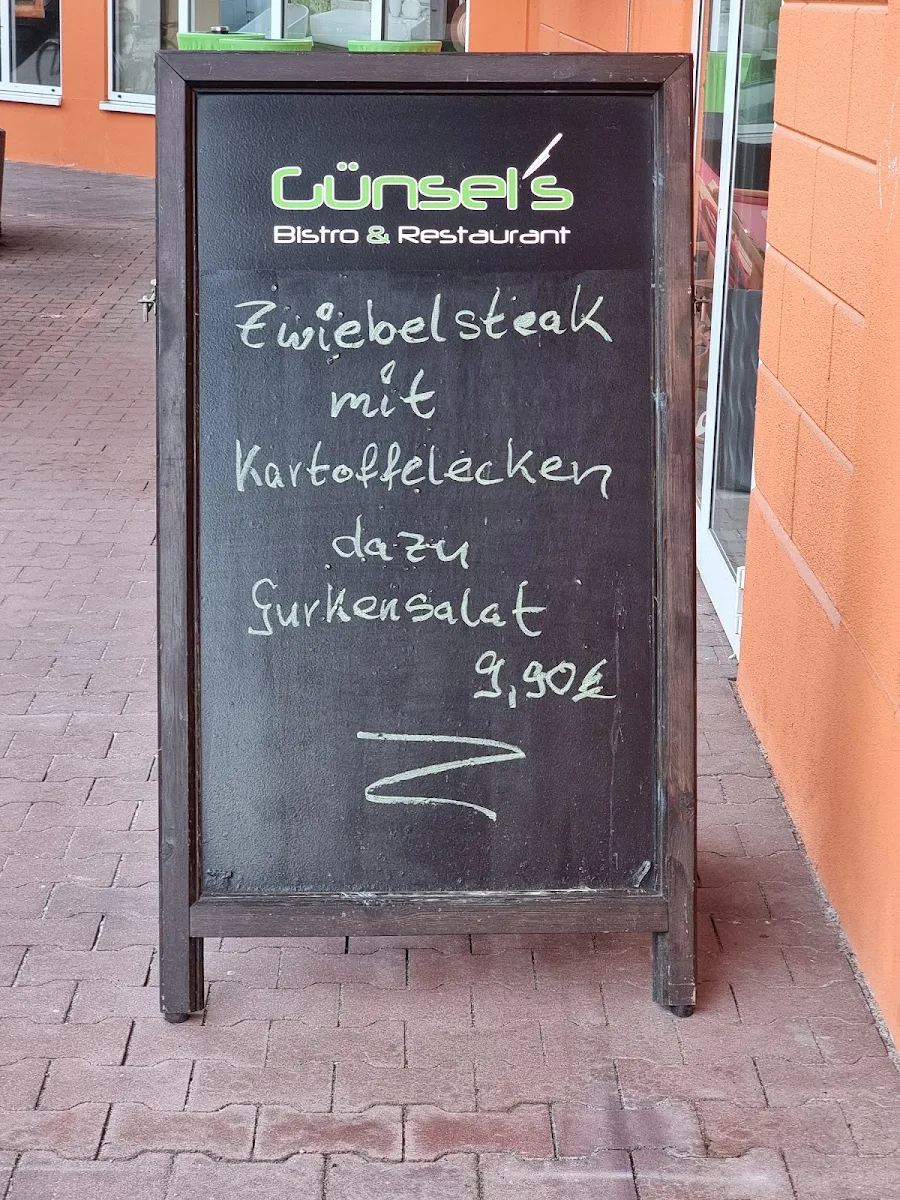 Günsel's
Bistro & Restaurant
Zwiebelsteak
mit
Kartoffelecken
dazu
Gurkensalat
9,90€